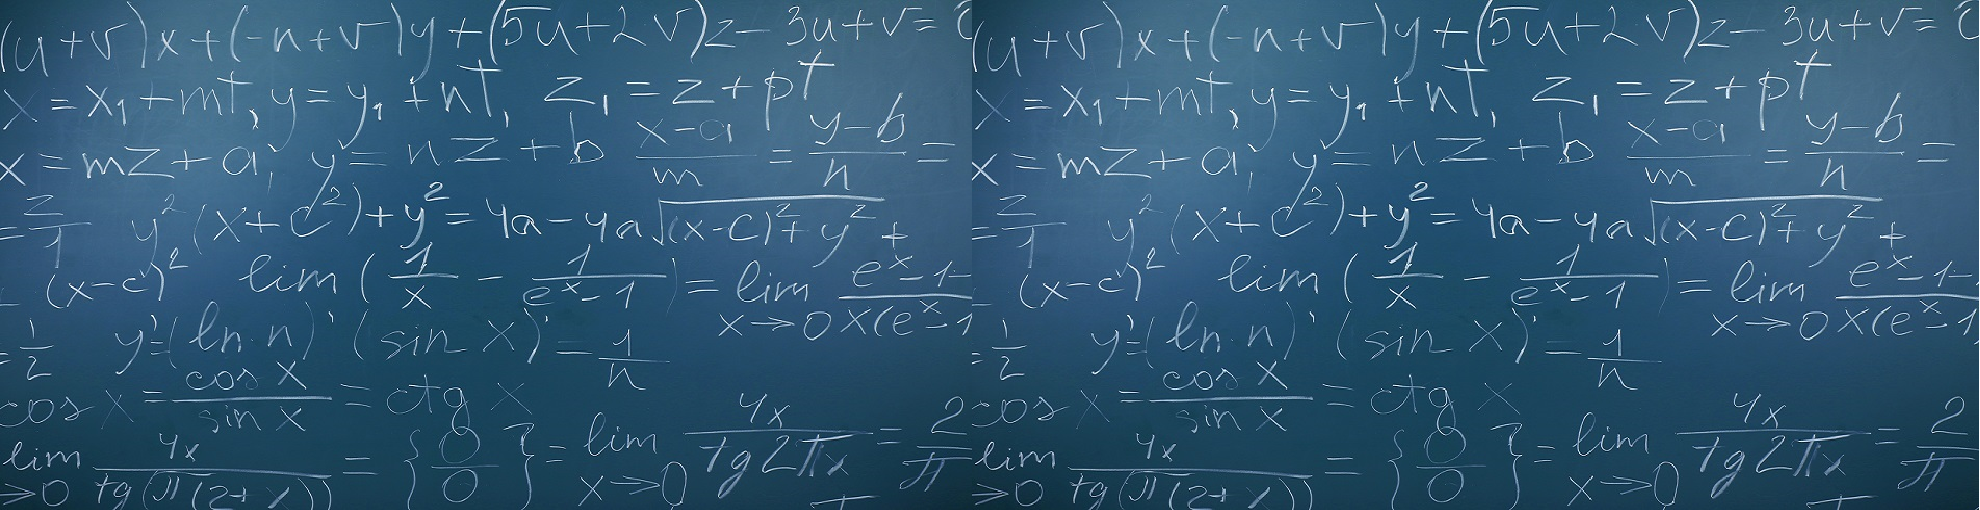 (u+v)x+(-u+v)y+(5u+2v)z-3u+v=0
x=x₁+mt, y=y₁+nt, z₁=z+pt
x=mz+a, y=nz+b (x-a)/m = (y-b)/n =
=z/1 y²(x+c²)+y²=4a-4a√(x-c)²+y² +
(x-c)² lim(1/x - 1/(eˣ-1)) = lim x→0 (eˣ-1-)/(x(eˣ-1
=1/2 y'=(ln n)' (sin x)'=1/n
cos x = cos x/sin x = ctg x
lim →0 4x/tg(π(2+x)) = {0/0} = lim x→0 4x/tg2πx = 2/π
(u+v)x+(-u+v)y+(5u+2v)z-3u+v=0
x=x₁+mt, y=y₁+nt, z₁=z+pt
x=mz+a, y=nz+b (x-a)/m = (y-b)/n =
=z/1 y²(x+c²)+y²=4a-4a√(x-c)²+y² +
(x-c)² lim(1/x - 1/(eˣ-1)) = lim x→0 (eˣ-1-)/(x(eˣ-1
=1/2 y'=(ln n)' (sin x)'=1/n
cos x = cos x/sin x = ctg x
lim →0 4x/tg(π(2+x)) = {0/0} = lim x→0 4x/tg2πx = 2/π